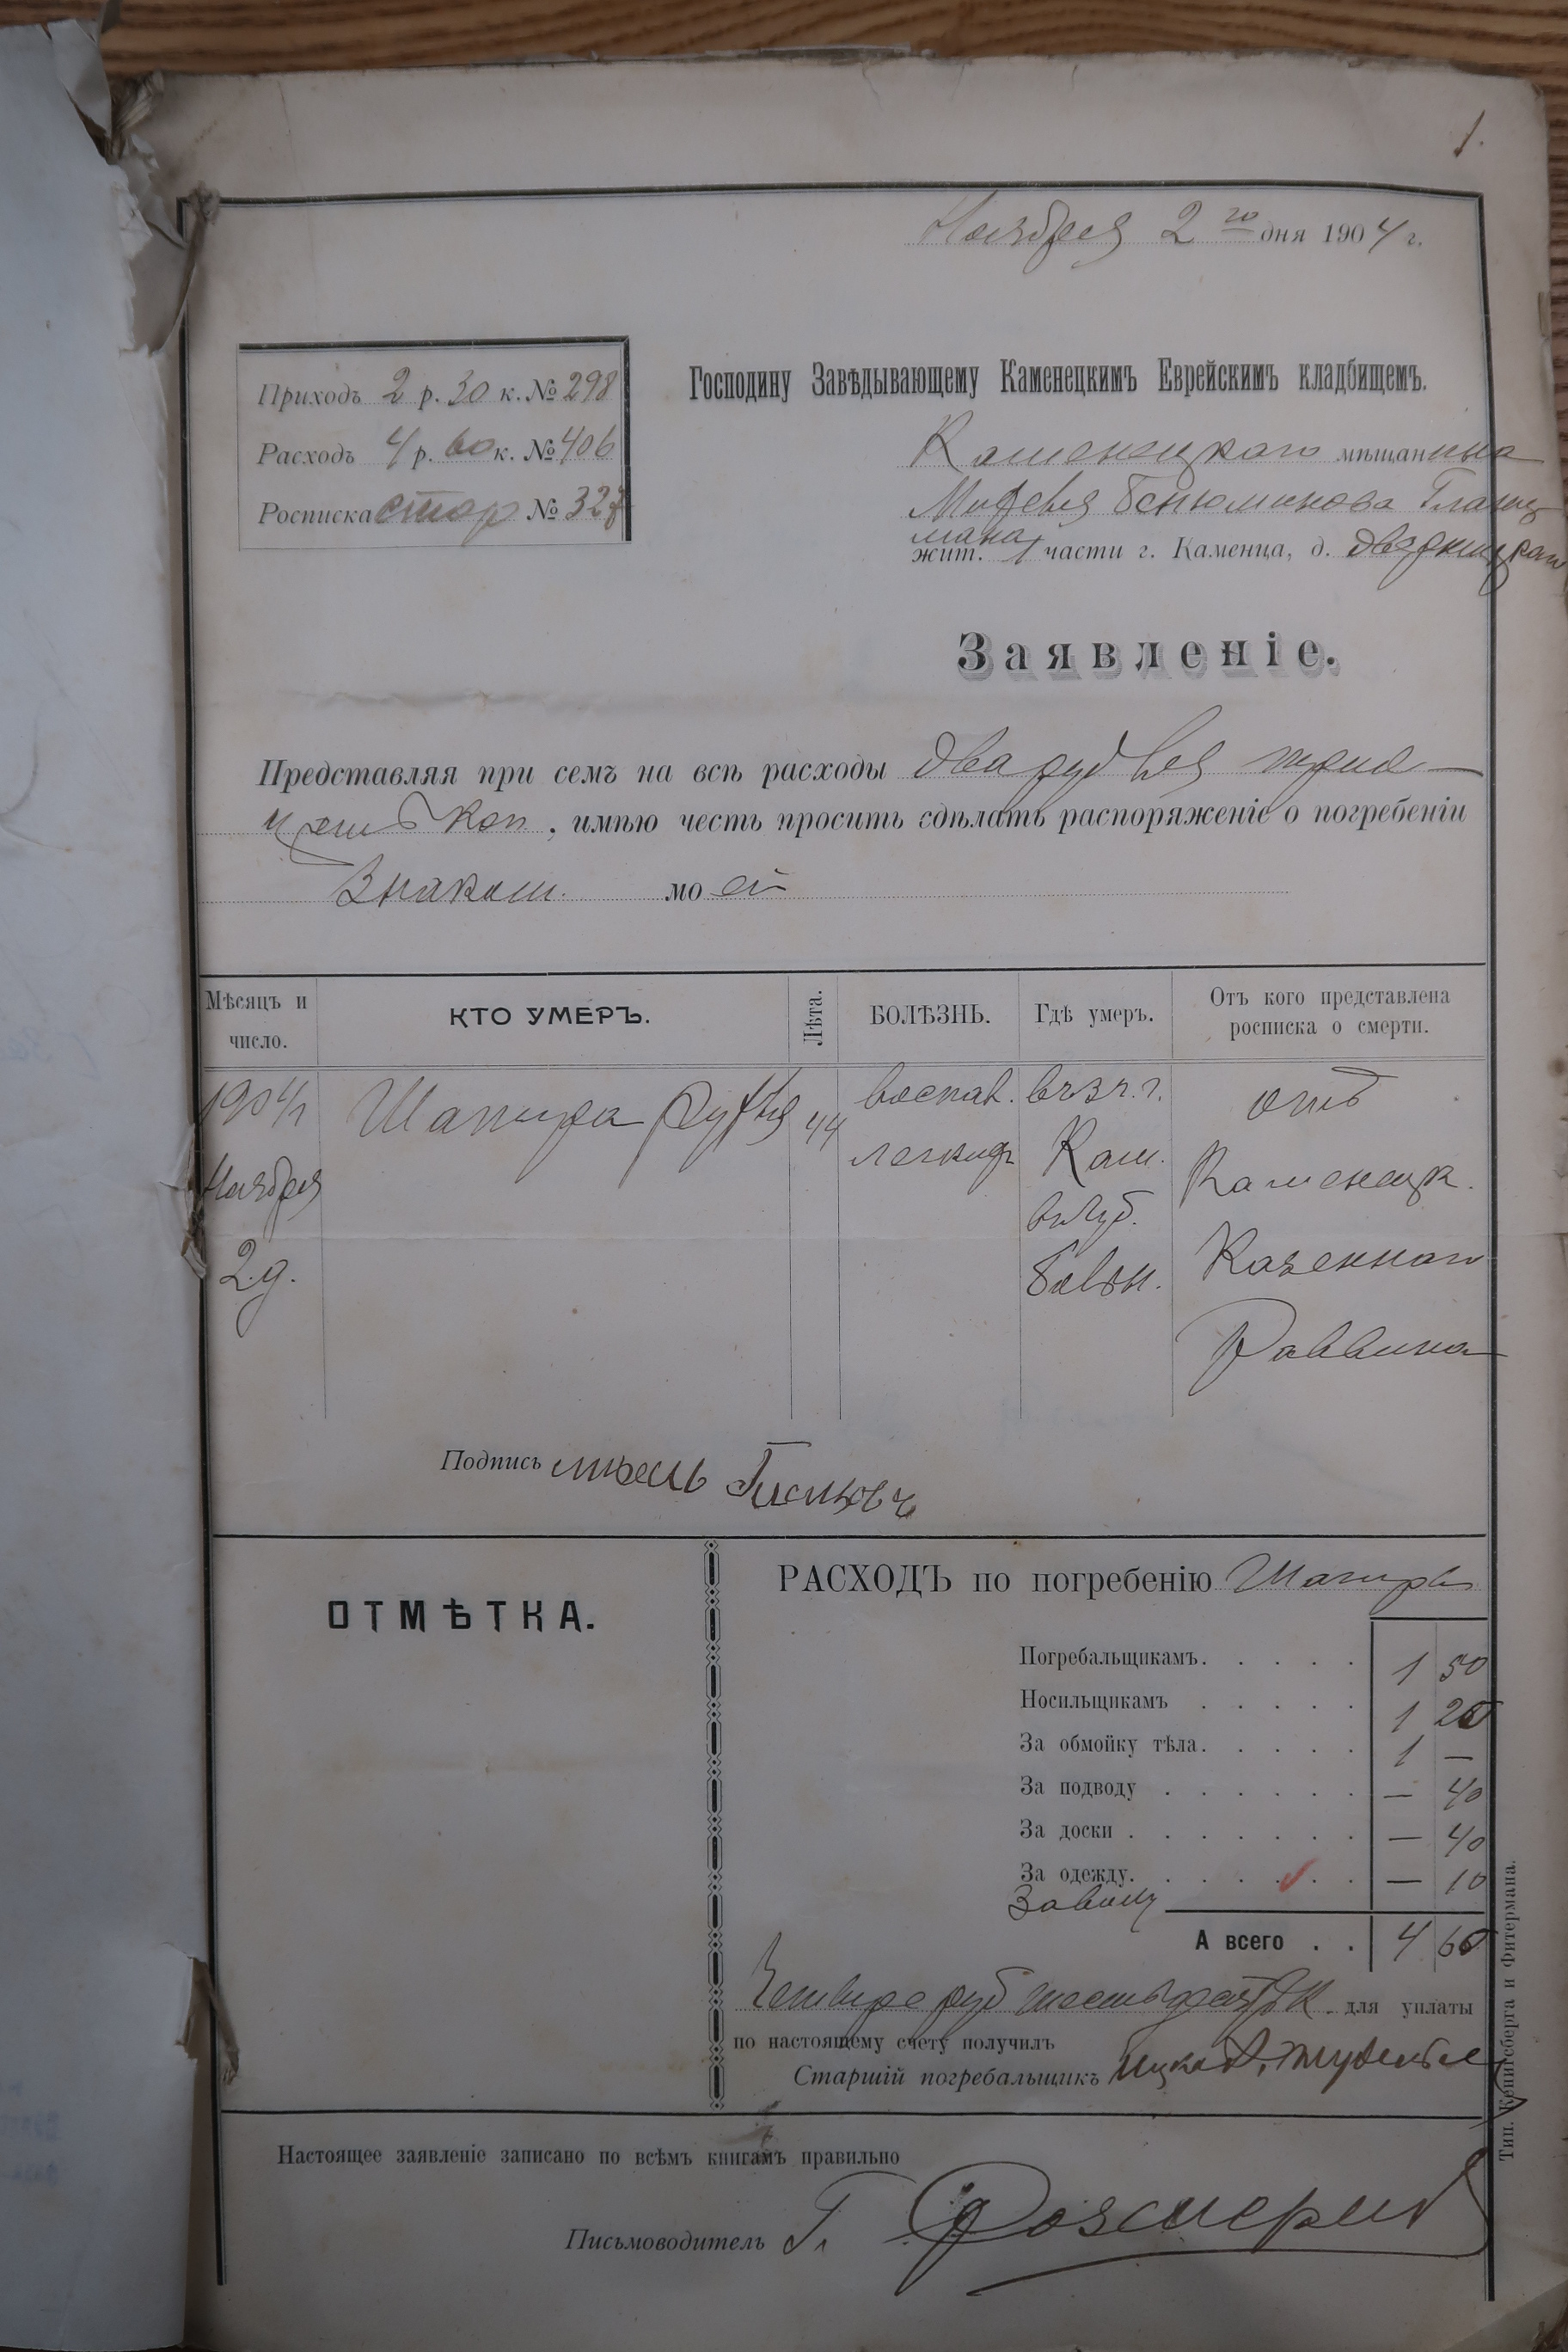 1.
Ноября 2 го дня 1904 г.
Приходъ 2 р. 30 к. № 298
Расходъ 4 р. 60 к. № 406
Росписка стор № 327
Господину Завѣдывающему Каменецкимъ Еврейскимъ кладбищемъ.
Каменецкаго мѣщанина
Бенюминова Гланц
мана
жит. 1 части г. Каменца, д.
Заявленіе.
Представляя при семъ на всѣ расходы два рубля трид
цать коп., имѣю честь просить сдѣлать распоряженіе о погребеніи
Знаком. моей
Мѣсяцъ и число.
КТО УМЕРЪ.
Лѣта.
БОЛѢЗНЬ.
Гдѣ умеръ.
Отъ кого представлена росписка о смерти.
1904 г
Ноября
2 д.
Шапира Руфля
44
воспал.
легкихъ
Кам.
въ губ.
больн.
отъ
Каменецк.
Казеннаго
Раввина
Подпись
ОТМѢТКА.
РАСХОДЪ по погребенію Шапира
Погребальщикамъ. 1 50
Носильщикамъ 1 20
За обмойку тѣла. 1 —
За подводу — 40
За доски — 40
За одежду. — 10
А всего 4 60
Четыре руб шестьдесятъ к. для уплаты
по настоящему счету получилъ
Старшій погребальщикъ
Настоящее заявленіе записано по всѣмъ книгамъ правильно
Письмоводитель Г. Розмеринъ
Тип. Кенигсберга и Фитермана.